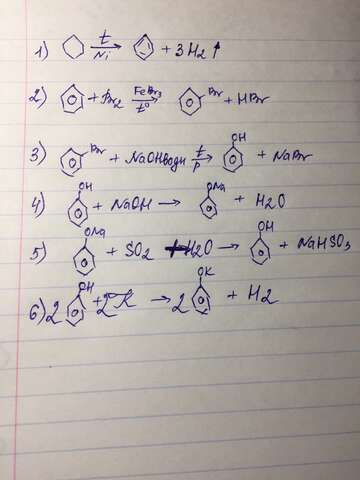 1) t Ni + 3H2 ↑
2) + Br2 FeBr3 t° Br + HBr
3) Br + NaOHводн t p OH + NaBr
4) OH + NaOH → ONa + H2O
5) ONa + SO2 + H2O → OH + NaHSO3
6) 2 OH + 2K → 2 OK + H2